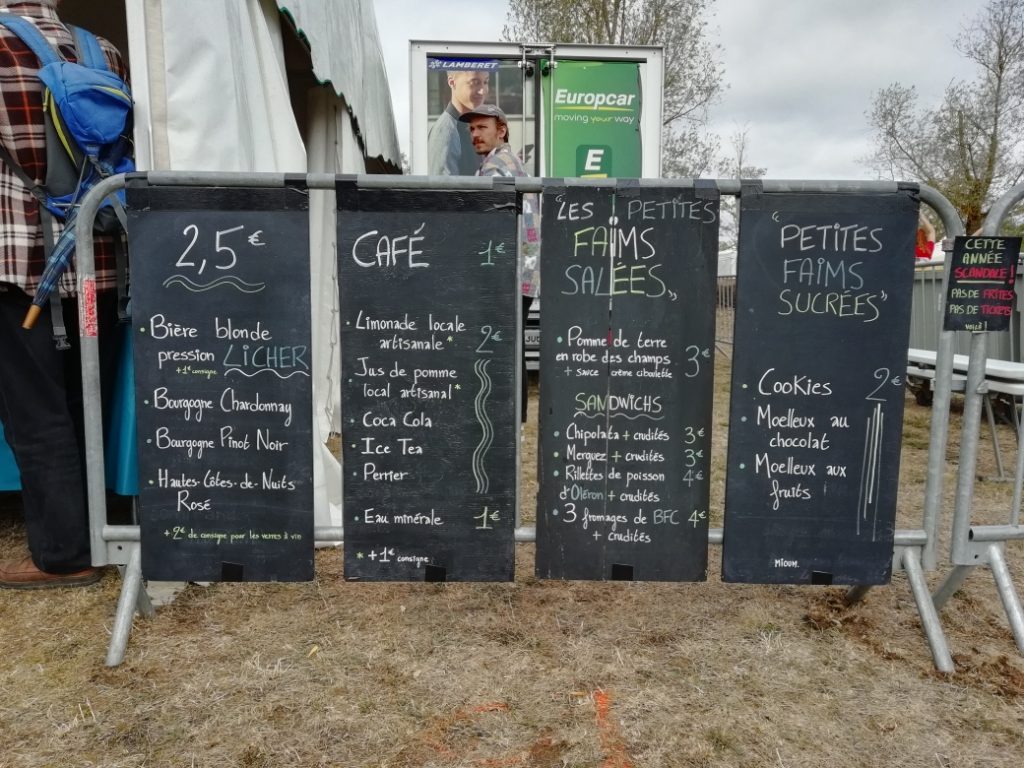 LAMBERET
Europcar
moving your way
E
2,5€
• Bière blonde
pression LICHER
+1€ consigne
• Bourgogne Chardonnay
• Bourgogne Pinot Noir
• Hautes-Côtes-de-Nuits
Rosé
+2€ de consigne pour les verres à vin
CAFÉ 1€
• Limonade locale
artisanale* 2€
• Jus de pomme
local artisanal*
• Coca Cola
• Ice Tea
• Perrier
• Eau minérale 1€
* +1€ consigne
"LES PETITES
FAIMS
SALÉES"
• Pomme de terre
en robe des champs 3€
+ sauce crème ciboulette
SANDWICHS
• Chipolata + crudités 3€
• Merguez + crudités 3€
• Rillettes de poisson 4€
d'Oléron + crudités
• 3 fromages de BFC 4€
+ crudités
"PETITES
FAIMS
SUCRÉES"
• Cookies 2€
• Moelleux au
chocolat
• Moelleux aux
fruits
MIOUM
CETTE
ANNÉE
SCANDALE!
PAS DE FRITES
PAS DE TICKETS
VOILÀ!